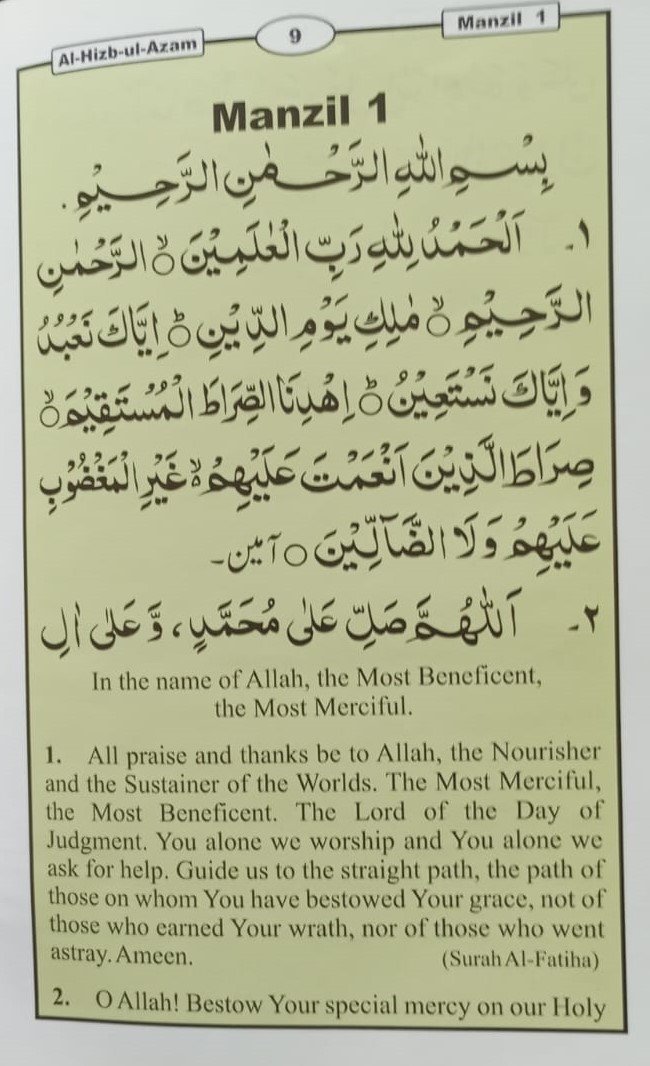 Al-Hizb-ul-Azam
9
Manzil 1
Manzil 1
بِسْمِ اللهِ الرَّحْمٰنِ الرَّحِيْمِ.
۱۔ اَلْحَمْدُ لِلّٰهِ رَبِّ الْعٰلَمِيْنَ ۙ○ الرَّحْمٰنِ
الرَّحِيْمِ ۙ○ مٰلِكِ يَوْمِ الدِّيْنِ ؕ○ اِيَّاكَ نَعْبُدُ
وَاِيَّاكَ نَسْتَعِيْنُ ؕ○ اِهْدِنَا الصِّرَاطَ الْمُسْتَقِيْمَ ۙ○
صِرَاطَ الَّذِيْنَ اَنْعَمْتَ عَلَيْهِمْ ۙ۬ غَيْرِ الْمَغْضُوْبِ
عَلَيْهِمْ وَلَا الضَّآلِّيْنَ ○ آمين۔
۲۔ اَللّٰهُمَّ صَلِّ عَلٰى مُحَمَّدٍ، وَّعَلٰى اٰلِ
In the name of Allah, the Most Beneficent,
the Most Merciful.
1. All praise and thanks be to Allah, the Nourisher
and the Sustainer of the Worlds. The Most Merciful,
the Most Beneficent. The Lord of the Day of
Judgment. You alone we worship and You alone we
ask for help. Guide us to the straight path, the path of
those on whom You have bestowed Your grace, not of
those who earned Your wrath, nor of those who went
astray. Ameen. (Surah Al-Fatiha)
2. O Allah! Bestow Your special mercy on our Holy